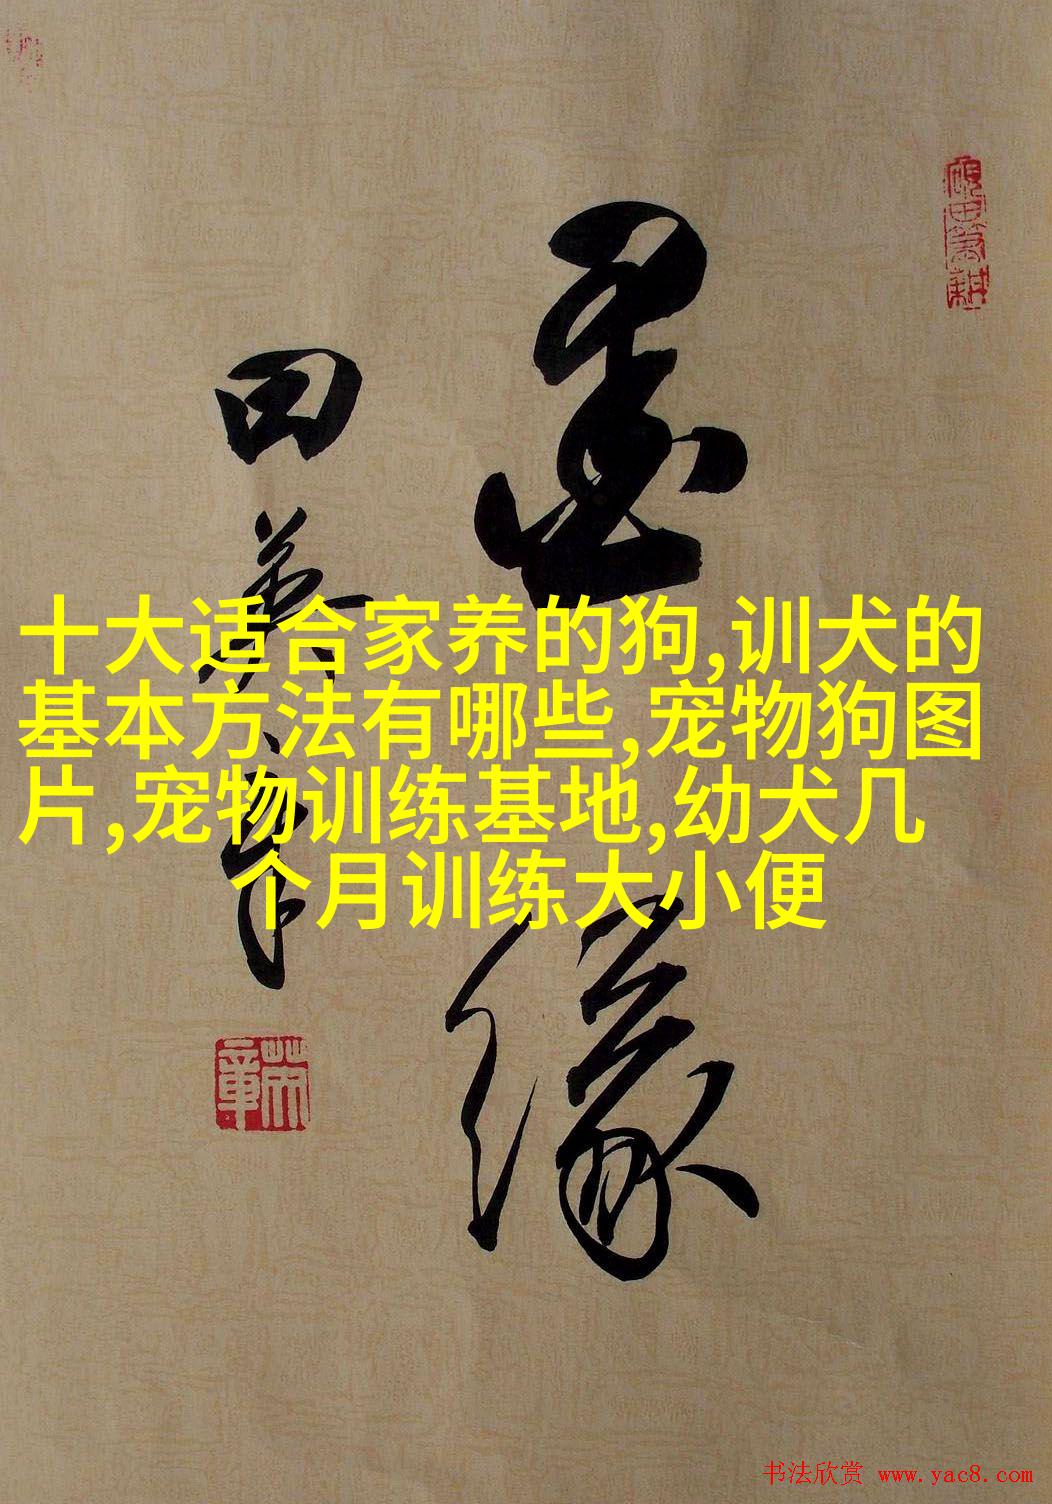 墨
缘
田英章
十大适合家养的狗,训犬的
基本方法有哪些,宠物狗图
片,宠物训练基地,幼犬几
个月训练大小便
书法欣赏 www.yac8.com